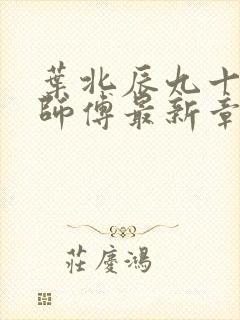 葉北辰九十
師傅最新章
莊慶鴻